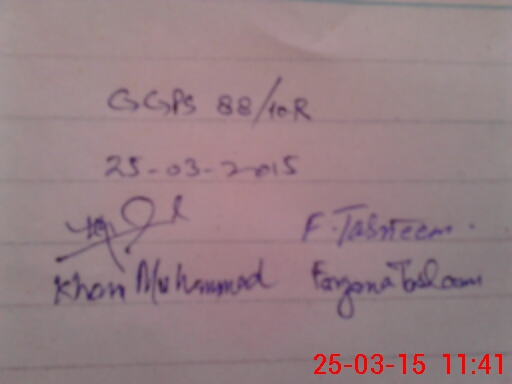 GGPS 88/10R
25-03-2015
F. Tasneem.
Khan Muhammad Farzana Tasleem
25-03-15 11:41